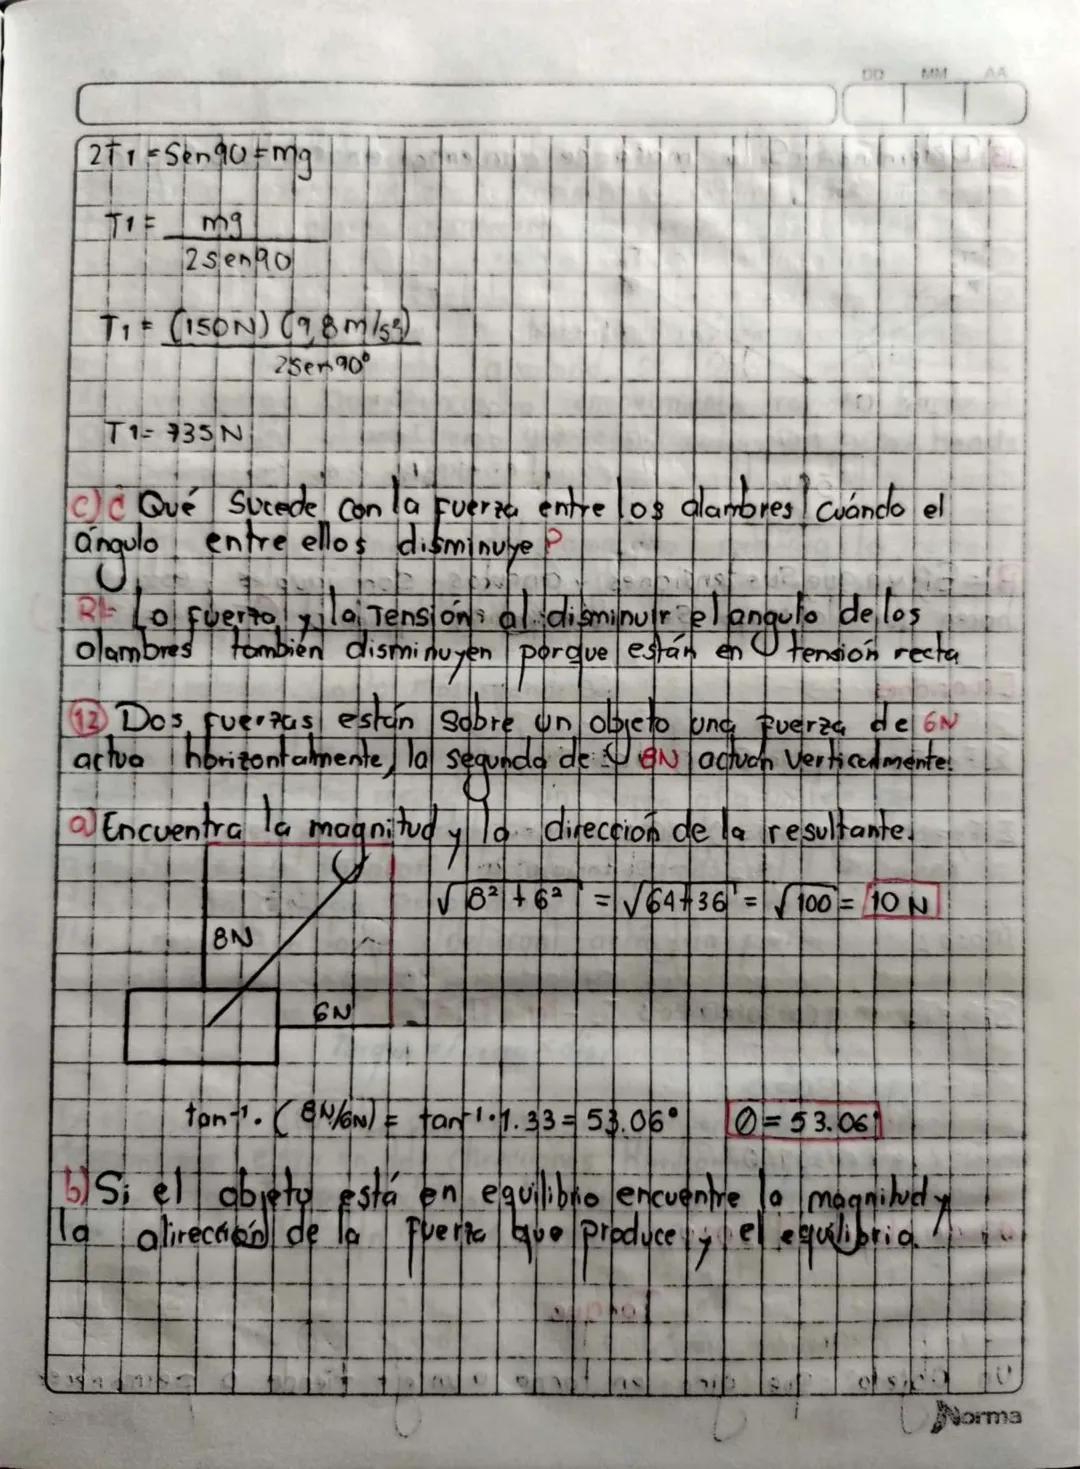 DD MM AA
2T1 = Sen90 = mg
T1 = mg
2sen90
T1 = (150N) (9,8m/s²)
2Sen90°
T1 = 735N
c) ¿ Qué sucede con la fuerza entre los alambres cuándo el
ángulo entre ellos disminuye?
R/= La fuerza y la Tensión al disminuir el angulo de los
alambres tambien disminuyen porque están en tensión recta
12 Dos fuerzas están sobre un objeto una fuerza de 6N
actua horizontalmente, la segunda de 8N actuan verticalmente.
a) Encuentra la magnitud y la dirección de la resultante.
√8² + 6² = √64+36 = √100 = 10 N
8N
6N
tan-1. (8N/6N) = tan-1.1.33 = 53.06° Ø = 53.06°
b) Si el objeto está en equilibrio encuentre la magnitud y
la dirección de la fuerza que produce y el equilibrio.
Norma